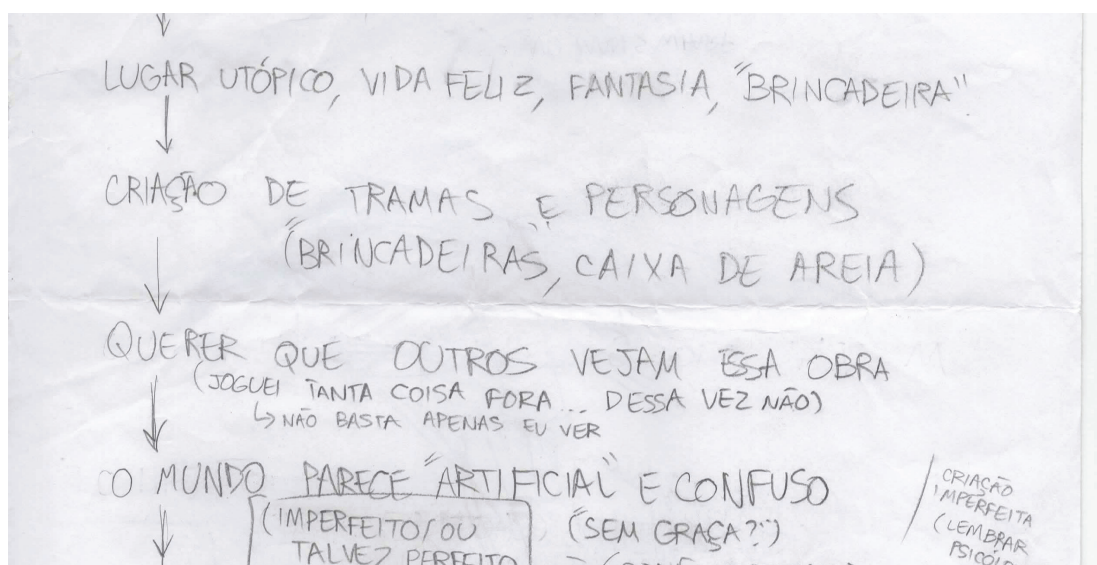 LUGAR UTÓPICO, VIDA FELIZ, FANTASIA, "BRINCADEIRA"
CRIAÇÃO DE TRAMAS E PERSONAGENS
("BRINCADEIRAS", CAIXA DE AREIA)
QUERER QUE OUTROS VEJAM ESSA OBRA
(JOGUEI TANTA COISA FORA... DESSA VEZ NÃO)
↳ NÃO BASTA APENAS EU VER
O MUNDO PARECE "ARTIFICIAL" E CONFUSO
(IMPERFEITO/OU
TALVEZ PERFEITO
(SEM GRAÇA?)
CRIAÇÃO
IMPERFEITA
(LEMBRAR